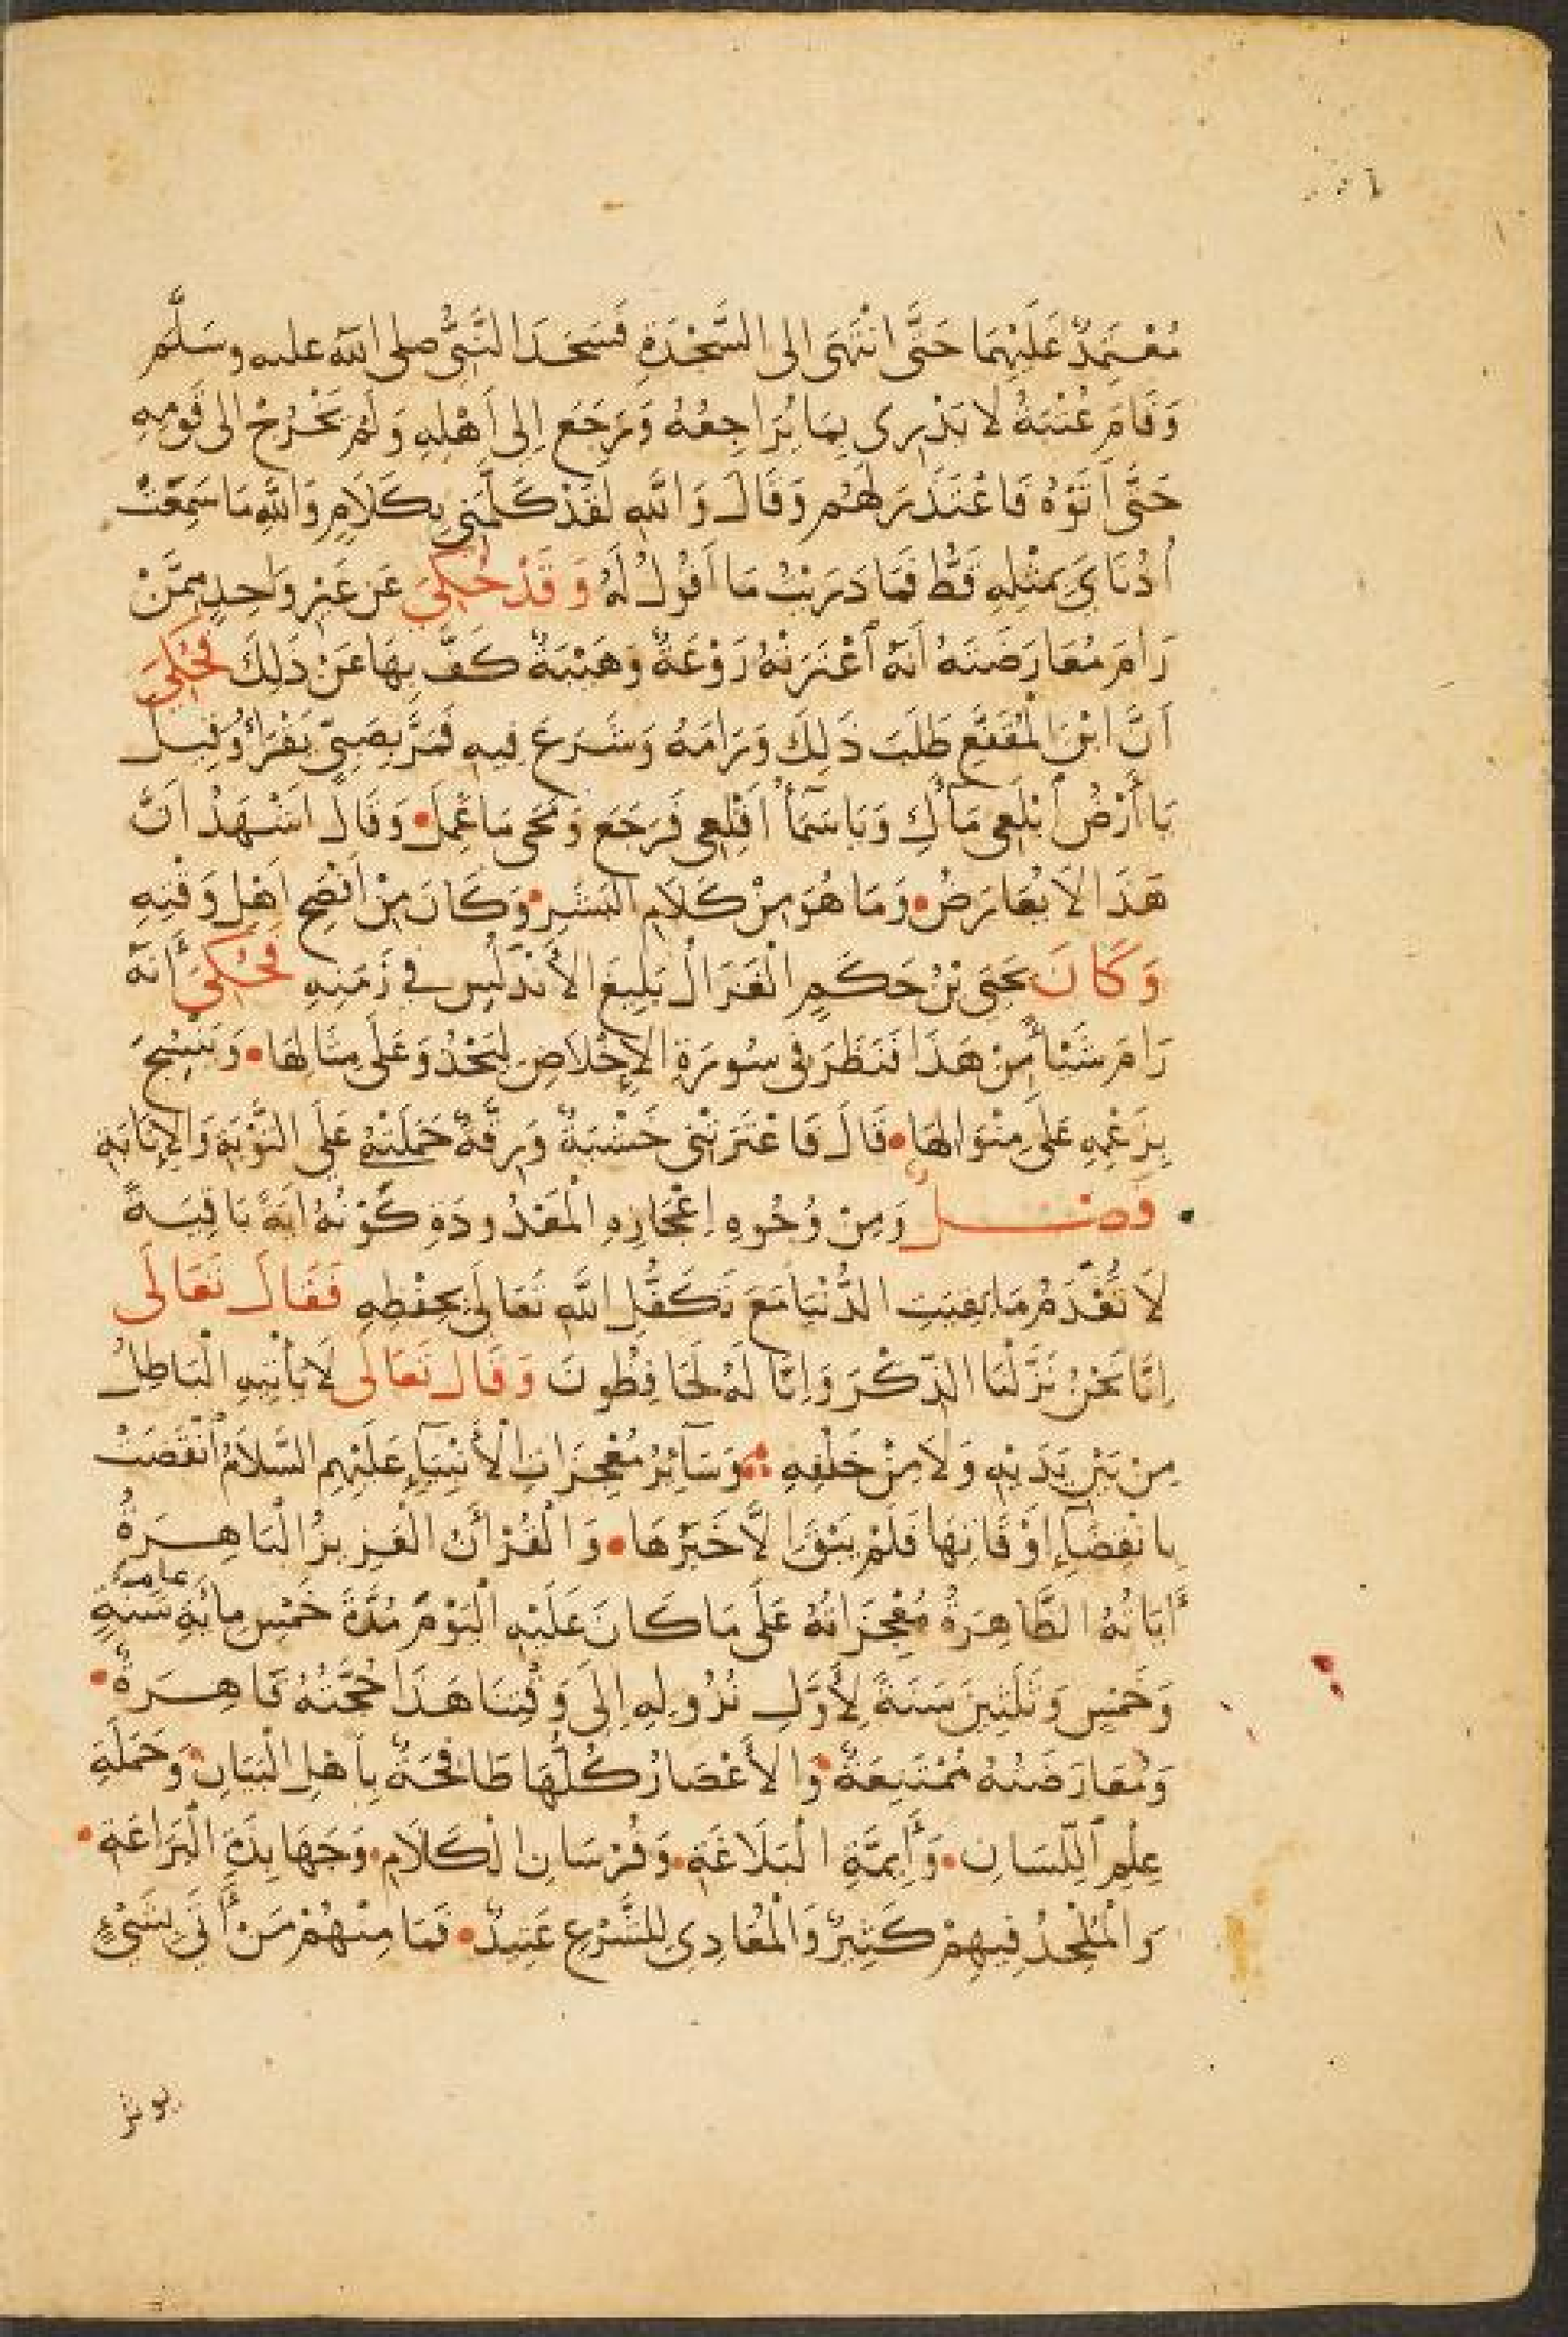 مُعْتَمِدٌ عَلَيْهِمَا حَتَّى انْتَهَى الى السَّجْدَةِ فَسَجَدَ النَّبِيُّ صلى الله عليه وسَلَّم
وَقَامَ عُتْبَةُ لَا يَدْرِى بِمَا يُرَاجِعُهُ وَرَجَعَ إِلى أَهْلِهِ وَلَمْ يَخْرُجْ الى قَوْمِهِ
حَتَّى أَتَوْهُ فَاعْتَذَرَ لَهُمْ وَقَالَ وَاللهِ لَقَدْ كَلَّمَنِي بِكَلَامٍ وَاللهِ مَا سَمِعَتْ
أُذُنَايَ بِمِثْلِهِ قَطُّ فَمَا دَرَيْتُ مَا أَقُولُ لَهُ وَقَدْ حُكِيَ عَن غَيْرِ وَاحِدٍ مِمَّنْ
رَامَ مُعَارَضَتَهُ أَنَّهُ اعْتَرَتْهُ رَوْعَةٌ وَهَيْبَةٌ كَفَّ بِهَا عَنْ ذَلِكَ فَحُكِيَ
أَنَّ ابْنَ الْمُقَفَّعِ طَلَبَ ذَلِكَ وَرَامَهُ وَشَرَعَ فِيهِ فَمَرَّ بِصَبِيٍّ يَقْرَأُ وَقِيلَ
يَا أَرْضُ ابْلَعِي مَاءَكِ وَيَا سَمَآءُ أَقْلِعِي فَرَجَعَ وَمَحَى مَا عَمِلَ وَقَالَ اَشْهَدُ اَنَّ
هَذَا لَا يُعَارَضُ وَمَا هُوَ مِنْ كَلَامِ البَشَرِ وَكَانَ مِنْ أَفْصَحِ أَهْلِ وَقْتِهِ
وَكَانَ يَحْيَى بْنُ حَكَمٍ الْغَزَالُ بَلِيغَ الأَنْدَلُسِ في زَمَنِهِ فَحُكِيَ أَنَّهُ
رَامَ شَيْأً مِنْ هَذَا فَنَظَرَ فِى سُورَةِ الإِخْلَاصِ لِيَحْذُوَ عَلَى مِثَالِهَا وَيَنْسِجَ
بِزَعْمِهِ عَلَى مِنْوَالِهَا قَالَ فَاعْتَرَتْنِي خَشْيَةٌ وَرِقَّةٌ حَمَلَتْهُ عَلَى التَّوْبَةِ وَالإِنَابَةِ
فصل وَمِنْ وُجُوهِ إِعْجَازِهِ الْمَعْدُودَةِ كَوْنُهُ أَيَةً بَاقِيَةً
لَا تُعْدَمُ مَا بَقِيَتِ الدُّنْيَا مَعَ تَكَفُّلِ اللهِ تَعَالَى بِحِفْظِهِ فَقَالَ تَعَالَى
إِنَّا نَحْنُ نَزَّلْنَا الذِّكْرَ وَإِنَّا لَهُ لَحَافِظُونَ وَقَالَ تَعَالَى لَا يَأْتِيهِ الْبَاطِلُ
مِنْ بَيْنِ يَدَيْهِ وَلَا مِنْ خَلْفِهِ وَسَآئِرُ مُعْجِزَاتِ الْأَنْبِيَآءِ عَلَيْهِم السَّلَامُ انْقَضَتْ
بِانْقِضَآءِ أَوْقَاتِهَا فَلَمْ يَبْقَ إِلَّا خَبَرُهَا وَالْقُرْأَنُ الْعَزِيزُ الْبَاهِرَةُ
أَيَاتُهُ الظَّاهِرَةُ مُعْجِزَاتُهُ عَلَى مَا كَانَ عَلَيْهِ الْيَوْمَ مُدَّةَ خَمْسِ مِائَةِ سَنَةٍ عام
وَخَمْسٍ وَثَلَثِينَ سَنَةً لِأَوَّلِ نُزُولِهِ إِلَى وَقْتِنَا هَذَا حُجَّتُهُ قَاهِرَةٌ
وَمُعَارَضَتُهُ مُمْتَنِعَةٌ وَالأَعْصَارُ كُلُّهَا طَافِحَةٌ بِأَهْلِ الْبَيَانِ وَحَمَلَةِ
عِلْمِ اللِّسَانِ وَأَئِمَّةِ الْبَلَاغَةِ وَفُرْسَانِ الْكَلَامِ وَجَهَابِذَةِ الْبَرَاعَةِ
وَالْمُلْحِدُ فِيهِمْ كَثِيرٌ وَالْمُعَادِي لِلشَّرْعِ عَتِيدٌ فَمَا مِنْهُمْ مَنْ أَتَى بِشَيْءٍ